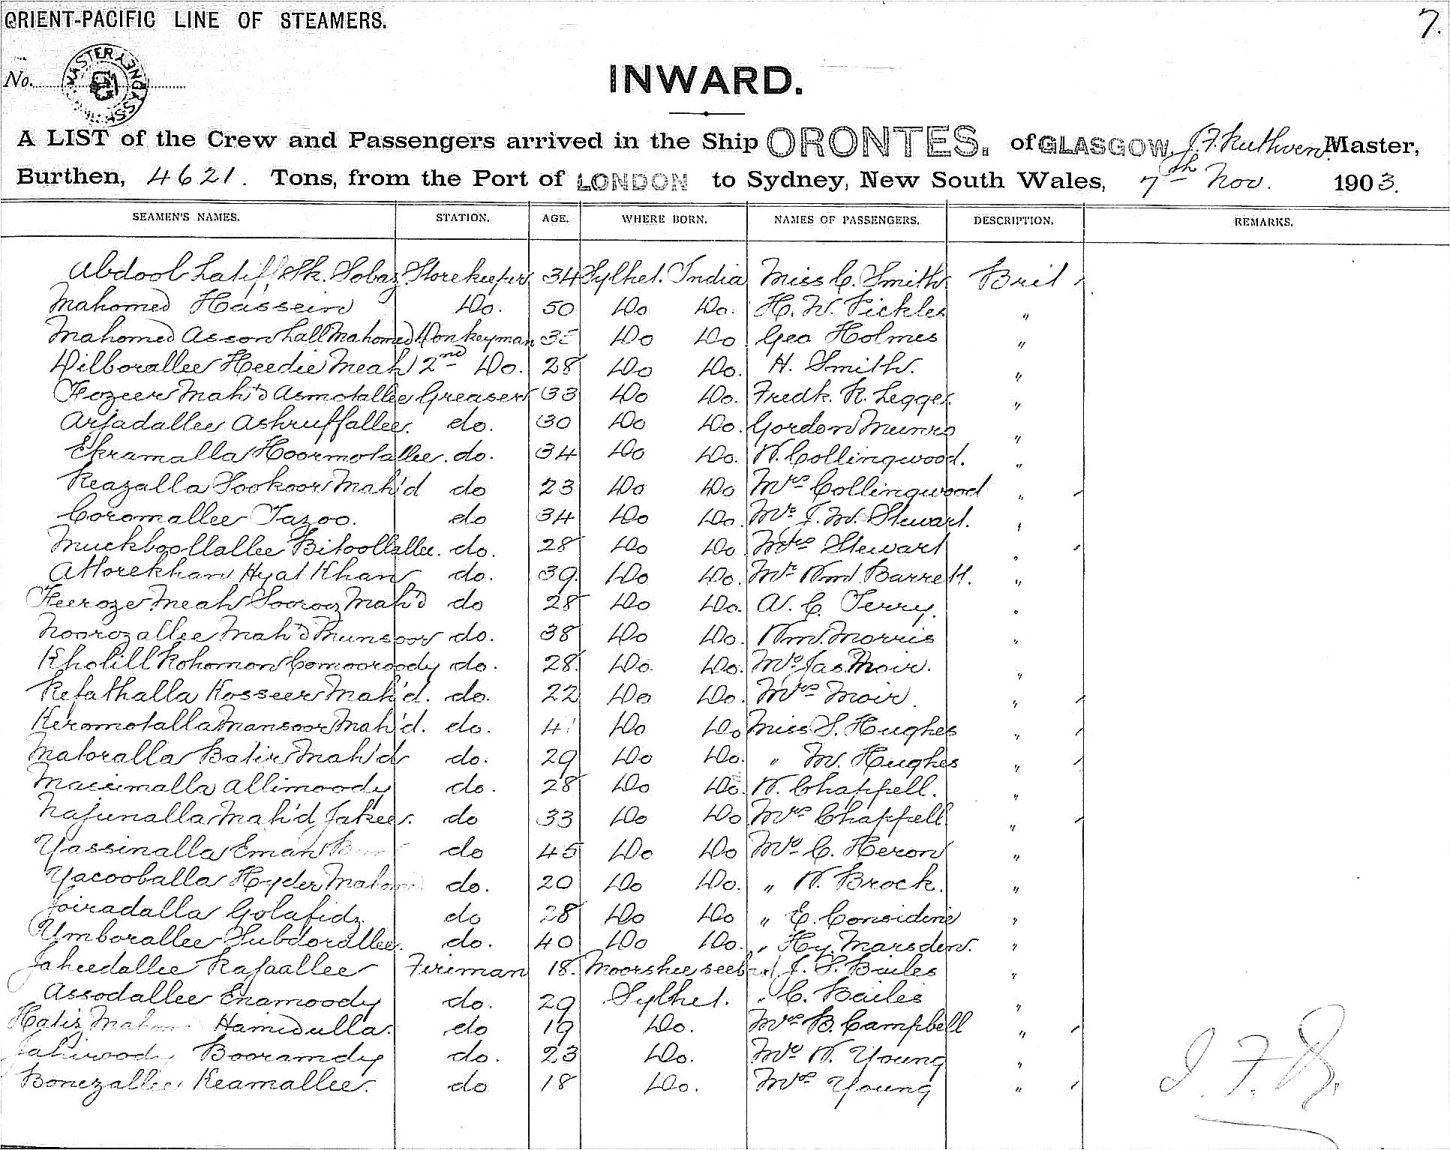 ORIENT-PACIFIC LINE OF STEAMERS. 7.
No.
INWARD.
A LIST of the Crew and Passengers arrived in the Ship ORONTES. of GLASGOW, J. F. Ruthven Master,
Burthen, 4621. Tons, from the Port of LONDON to Sydney, New South Wales, 7th Nov. 1903.
SEAMEN'S NAMES. STATION. AGE. WHERE BORN. NAMES OF PASSENGERS. DESCRIPTION. REMARKS.
Abdool Latiff Sk. Sobaz Storekeeper 34 Sylhet. India Miss C. Smith Brit
Mahomed Hassein Do. 50 Do Do. H. W. Pickles "
Mahomed Asson Lall Mahomed Donkeyman Do Do Geo Holmes "
Dilborallee Heedie Meah 2nd Do. 28 Do Do. H. Smith. "
Fozeer Mah'd Asmotallee Greaser 33 Do Do. Fredk. R. Legge. "
Arfadallee Ashruffallee. do. 30 Do Do. Gordon Munro "
Ekramalla Hoormotallee. do. 34 Do Do. W. Collingwood. "
Reazalla Sookoor Mah'd do 23 Do Do Mrs Collingwood "
Coromallee Tazoo. do 34 Do Do. Mr J. M. Stewart. "
Muckboollallee Bitoollallee. do. 28 Do Do. Mrs Stewart "
Attorekhan Hyat Khan do. 39 Do Do. Mr Wm Barrett. "
Feeroze Meah Soorog Mah'd do 28 Do Do. A. C. Terry. "
Noorozallee Mah'd Munsoor do. 38 Do Do. Wm. Morris "
Kholill Rohomon Comooroody do. 28. Do. Do. Mr Jas Moir. "
Refathalla Kosseer Mah'd. do. 22 Do Do. Mrs Moir. "
Keromotalla Mansoor Mah'd. do. Do Do Miss S. Hughes "
Matoralla Batir Mah'd do. 29 Do Do. " M. Hughes "
Massimalla Allimoody do. 28 Do Do. W. Chappell. "
Najunalla Mah'd Jakeer. do 33 Do Do Mrs Chappell "
Yassinalla Eman do 45 Do Do Mr C. Heron "
Yacooballa Hyder Mahomed do. 20 Do Do. " W. Brock. "
Joiradalla Golafidz do 28 Do Do " E. Considine "
Umborallee Subdorallee. do. 40 Do Do. " Hy. Marsden. "
Jaheedallee Rafaallee Fireman 18. Moorsheeseebad J. S. Bailes "
Assodallee Enamoody do. 29 Sylhet. " C. Bailes "
Hatis Hamidulla. do 19 Do. Mrs B. Campbell "
Jahiroody Booramdy do. 23 Do. Mr W. Young "
Bonezallee Keamallee. do 18 Do. Mrs Young "